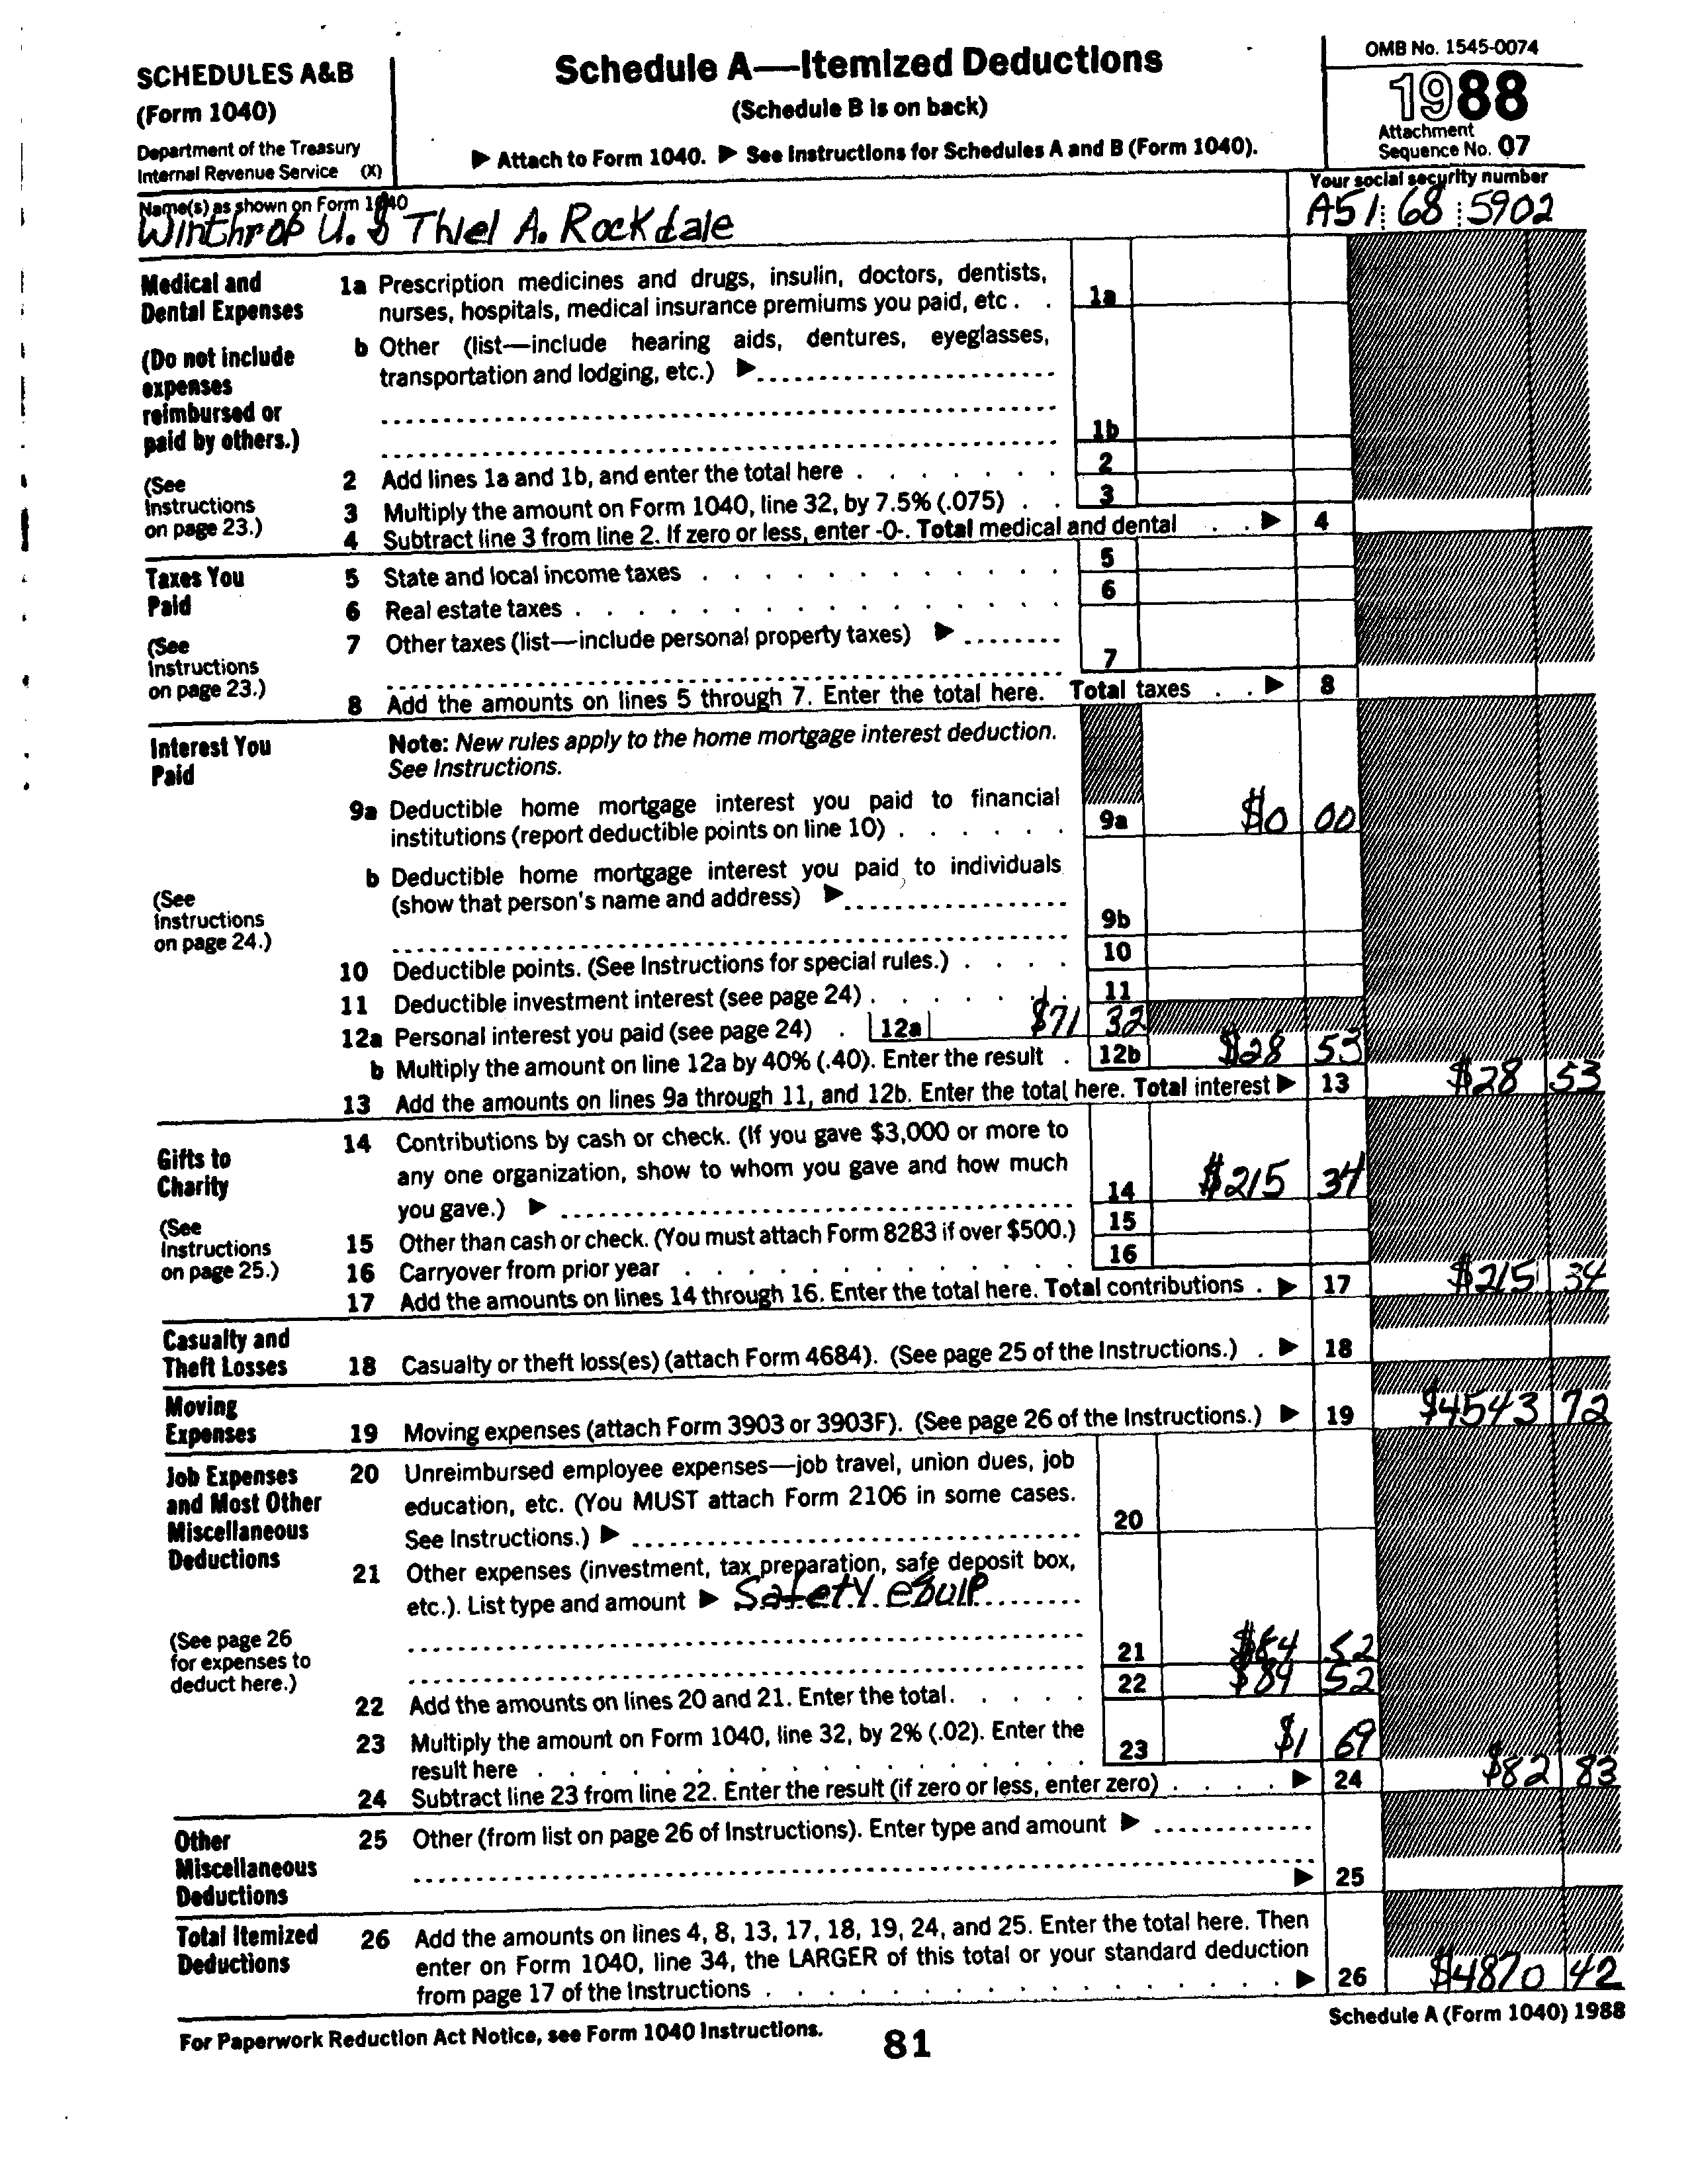 SCHEDULES A&B
(Form 1040)
Department of the Treasury
Internal Revenue Service (X)
Schedule A—Itemized Deductions
(Schedule B is on back)
▶ Attach to Form 1040. ▶ See Instructions for Schedules A and B (Form 1040).
OMB No. 1545-0074
1988
Attachment
Sequence No. 07
Name(s) as shown on Form 1040
Winthrop U. & Thiel A. Rockdale
Your social security number
A51 68 5902
Medical and
Dental Expenses
(Do not include
expenses
reimbursed or
paid by others.)
(See
Instructions
on page 23.)
1a Prescription medicines and drugs, insulin, doctors, dentists,
nurses, hospitals, medical insurance premiums you paid, etc . . 1a
b Other (list—include hearing aids, dentures, eyeglasses,
transportation and lodging, etc.) ▶
1b
2 Add lines 1a and 1b, and enter the total here . . . . . . . 2
3 Multiply the amount on Form 1040, line 32, by 7.5% (.075) . . 3
4 Subtract line 3 from line 2. If zero or less, enter -0-. Total medical and dental . . ▶ 4
Taxes You
Paid
(See
Instructions
on page 23.)
5 State and local income taxes . . . . . . . . . . . . 5
6 Real estate taxes . . . . . . . . . . . . . . . . 6
7 Other taxes (list—include personal property taxes) ▶
7
8 Add the amounts on lines 5 through 7. Enter the total here. Total taxes . . ▶ 8
Interest You
Paid
(See
Instructions
on page 24.)
Note: New rules apply to the home mortgage interest deduction.
See Instructions.
9a Deductible home mortgage interest you paid to financial
institutions (report deductible points on line 10) . . . . . . 9a $0 00
b Deductible home mortgage interest you paid to individuals
(show that person's name and address) ▶
9b
10 Deductible points. (See Instructions for special rules.) . . . . 10
11 Deductible investment interest (see page 24) . . . . . . . 11
12a Personal interest you paid (see page 24) . 12a $71 32
b Multiply the amount on line 12a by 40% (.40). Enter the result . 12b $28 53
13 Add the amounts on lines 9a through 11, and 12b. Enter the total here. Total interest ▶ 13 $28 53
Gifts to
Charity
(See
Instructions
on page 25.)
14 Contributions by cash or check. (If you gave $3,000 or more to
any one organization, show to whom you gave and how much
you gave.) ▶ 14 $215 34
15 Other than cash or check. (You must attach Form 8283 if over $500.) 15
16 Carryover from prior year . . . . . . . . . . . . . 16
17 Add the amounts on lines 14 through 16. Enter the total here. Total contributions . ▶ 17 $215 34
Casualty and
Theft Losses
18 Casualty or theft loss(es) (attach Form 4684). (See page 25 of the Instructions.) . ▶ 18
Moving
Expenses
19 Moving expenses (attach Form 3903 or 3903F). (See page 26 of the Instructions.) ▶ 19 $4543 72
Job Expenses
and Most Other
Miscellaneous
Deductions
(See page 26
for expenses to
deduct here.)
20 Unreimbursed employee expenses—job travel, union dues, job
education, etc. (You MUST attach Form 2106 in some cases.
See Instructions.) ▶ 20
21 Other expenses (investment, tax preparation, safe deposit box,
etc.). List type and amount ▶ Safety equip
21 $84 52
22 Add the amounts on lines 20 and 21. Enter the total. . . . . 22 $84 52
23 Multiply the amount on Form 1040, line 32, by 2% (.02). Enter the
result here . . . . . . . . . . . . . . . . . . 23 $1 69
24 Subtract line 23 from line 22. Enter the result (if zero or less, enter zero) . . . . ▶ 24 $82 83
Other
Miscellaneous
Deductions
25 Other (from list on page 26 of Instructions). Enter type and amount ▶
▶ 25
Total Itemized
Deductions
26 Add the amounts on lines 4, 8, 13, 17, 18, 19, 24, and 25. Enter the total here. Then
enter on Form 1040, line 34, the LARGER of this total or your standard deduction
from page 17 of the Instructions . . . . . . . . . . . . . . . . ▶ 26 $4870 42
For Paperwork Reduction Act Notice, see Form 1040 Instructions.
81
Schedule A (Form 1040) 1988